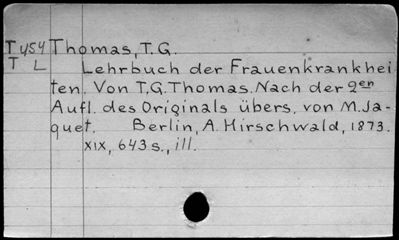 T y54 Thomas, T.G.
T L Lehrbuch der Frauenkrankhei
ten. Von T.G. Thomas. Nach der 2en
Aufl. des Originals übers. von M. Ja-
quet. Berlin, A. Hirschwald, 1873.
XIX, 643 s., ill.